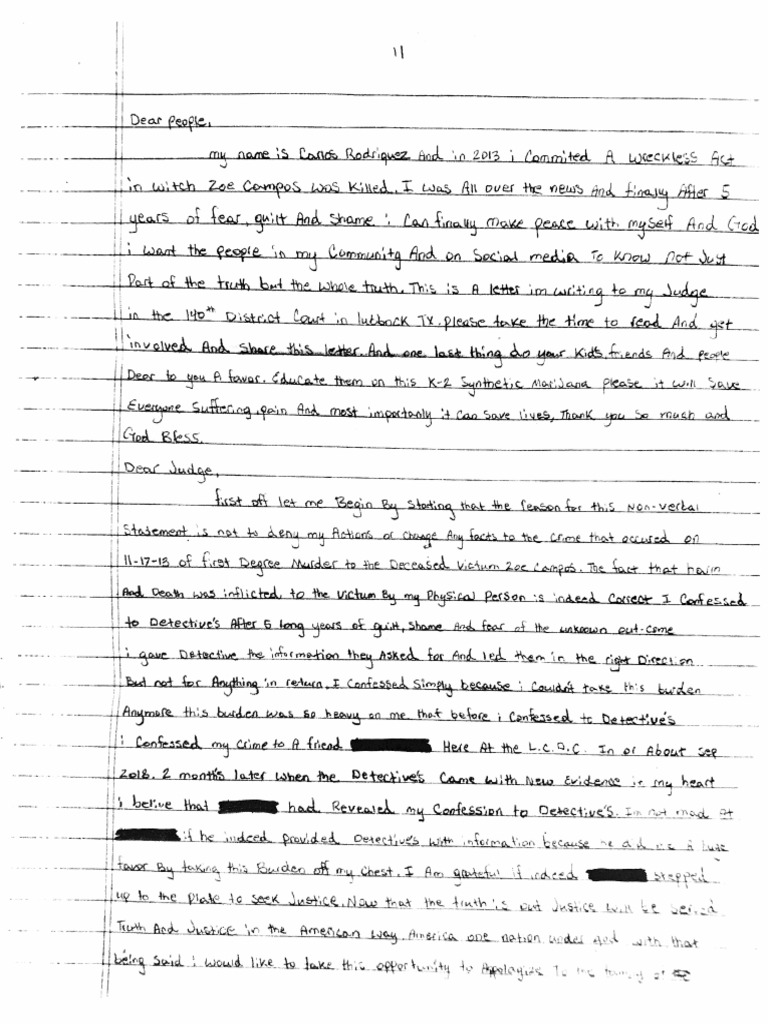 11
Dear people,
my name is Carlos Rodriquez And in 2013 i Commited A wreckless Act
in witch Zoe Campos was killed. I was All over the news And finally After 5
years of fear, guilt And shame i Can finally make peace with myself And God
i want the people in my Community And on Social media To Know not Just
Part of the truth but the whole truth. This is A letter im writing to my Judge
in the 140th District Court in lubbock TX. please take the time to read And get
involved And share this letter. And one last thing do your Kid's, friends And people
Dear to you A favor. Educate them on this K-2 Synthetic Marijana please it will Save
Everyone Suffering, pain And most importanly it can save lives, Thank you so much and
God Bless.
Dear Judge,
first off let me Begin By Stating that the reason for this Non-verbal
Statement is not to deny my Actions or change Any facts to the Crime that occured on
11-17-13 of first Degree Murder to the Deceased Victum Zoe Campos. The fact that harm
And Death was inflicted to the victum By my Physical Person is indeed Correct I Confessed
to Detective's After 5 long years of guilt, shame And fear of the unknown out-come
i gave Detective the information they Asked for And led them in the right Direction
But not for Anything in return. I Confessed Simply because i Couldn't take this burden
Anymore this burden was so heavy on me that before i Confessed to Detective's
i Confessed my Crime to A friend Here At the L.C.D.C. In or About Sep
2018. 2 month's later when the Detective's Came with New Evidence in my heart
i belive that had Revealed my Confession to Detective's. Im not mad At
if he indeed provided Detective's with information because he did me A
favor By taking this Burden off my Chest. I Am grateful if indeed stepped
up to the Plate to seek Justice. Now that the truth is out Justice will be served
Truth And Justice in the American way. America one nation under God with that
being said i would like to take this opportunity to Apologize To the family of